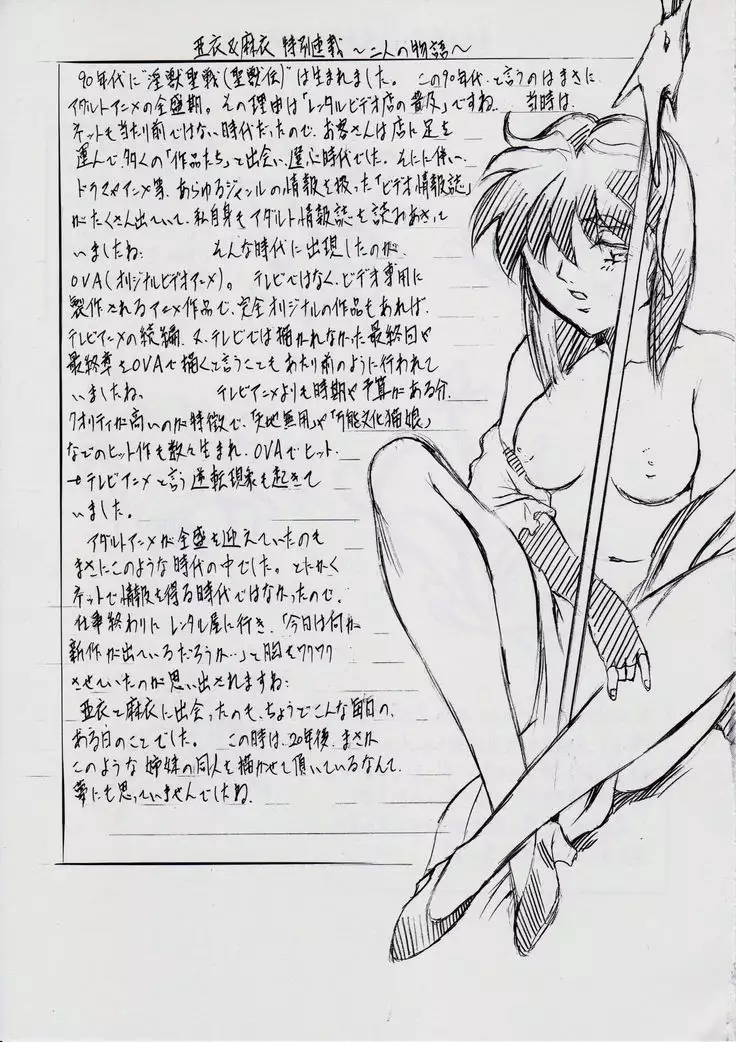 亜衣&麻衣 特別連載 ～二人の物語～
90年代に"淫獣聖戦(聖獣伝)"は生まれました。 この90年代と言うのはまさに
アダルトアニメの全盛期。その理由は「レンタルビデオ店の普及」ですね 当時は
ネットも当たり前ではない時代だったので、お客さんは店に足を
運んで多くの「作品たち」と出会い、選ぶ時代でした。それに伴い、
ドラマやアニメ等、あらゆるジャンルの情報を扱った「ビデオ情報誌」
がたくさん出ていて、私自身もアダルト情報誌を読みあさって
いましたね。 そんな時代に出現したのが
OVA(オリジナルビデオアニメ)。 テレビではなく、ビデオ専用に
製作されるアニメ作品で、完全オリジナルの作品もあれば、
テレビアニメの続編、又、テレビでは描かれなかった最終回や
最終章をOVAで描くと言うこともあたり前のように行われて
いましたね。 テレビアニメよりも時期や予算がある分、
クオリティが高いのが特徴で、「天地無用」や「万能文化猫娘」
などのヒット作も数々生まれ、OVAでヒット
→テレビアニメと言う逆転現象も起きて
いました。
アダルトアニメが全盛を迎えていたのも
まさにこのような時代の中でした。とにかく
ネットで情報を得る時代ではなかったので、
仕事終わりにレンタル屋に行き、「今日は何か
新作が出ているだろうか…」と胸をワクワク
させていたのが思い出されますね。
亜衣と麻衣に出会ったのも、ちょうどこんな毎日の、
ある日のことでした。 この時は、20年後、まさか
このような姉妹の同人を描かせて頂いているなんて、
夢にも思っていませんでしたね。